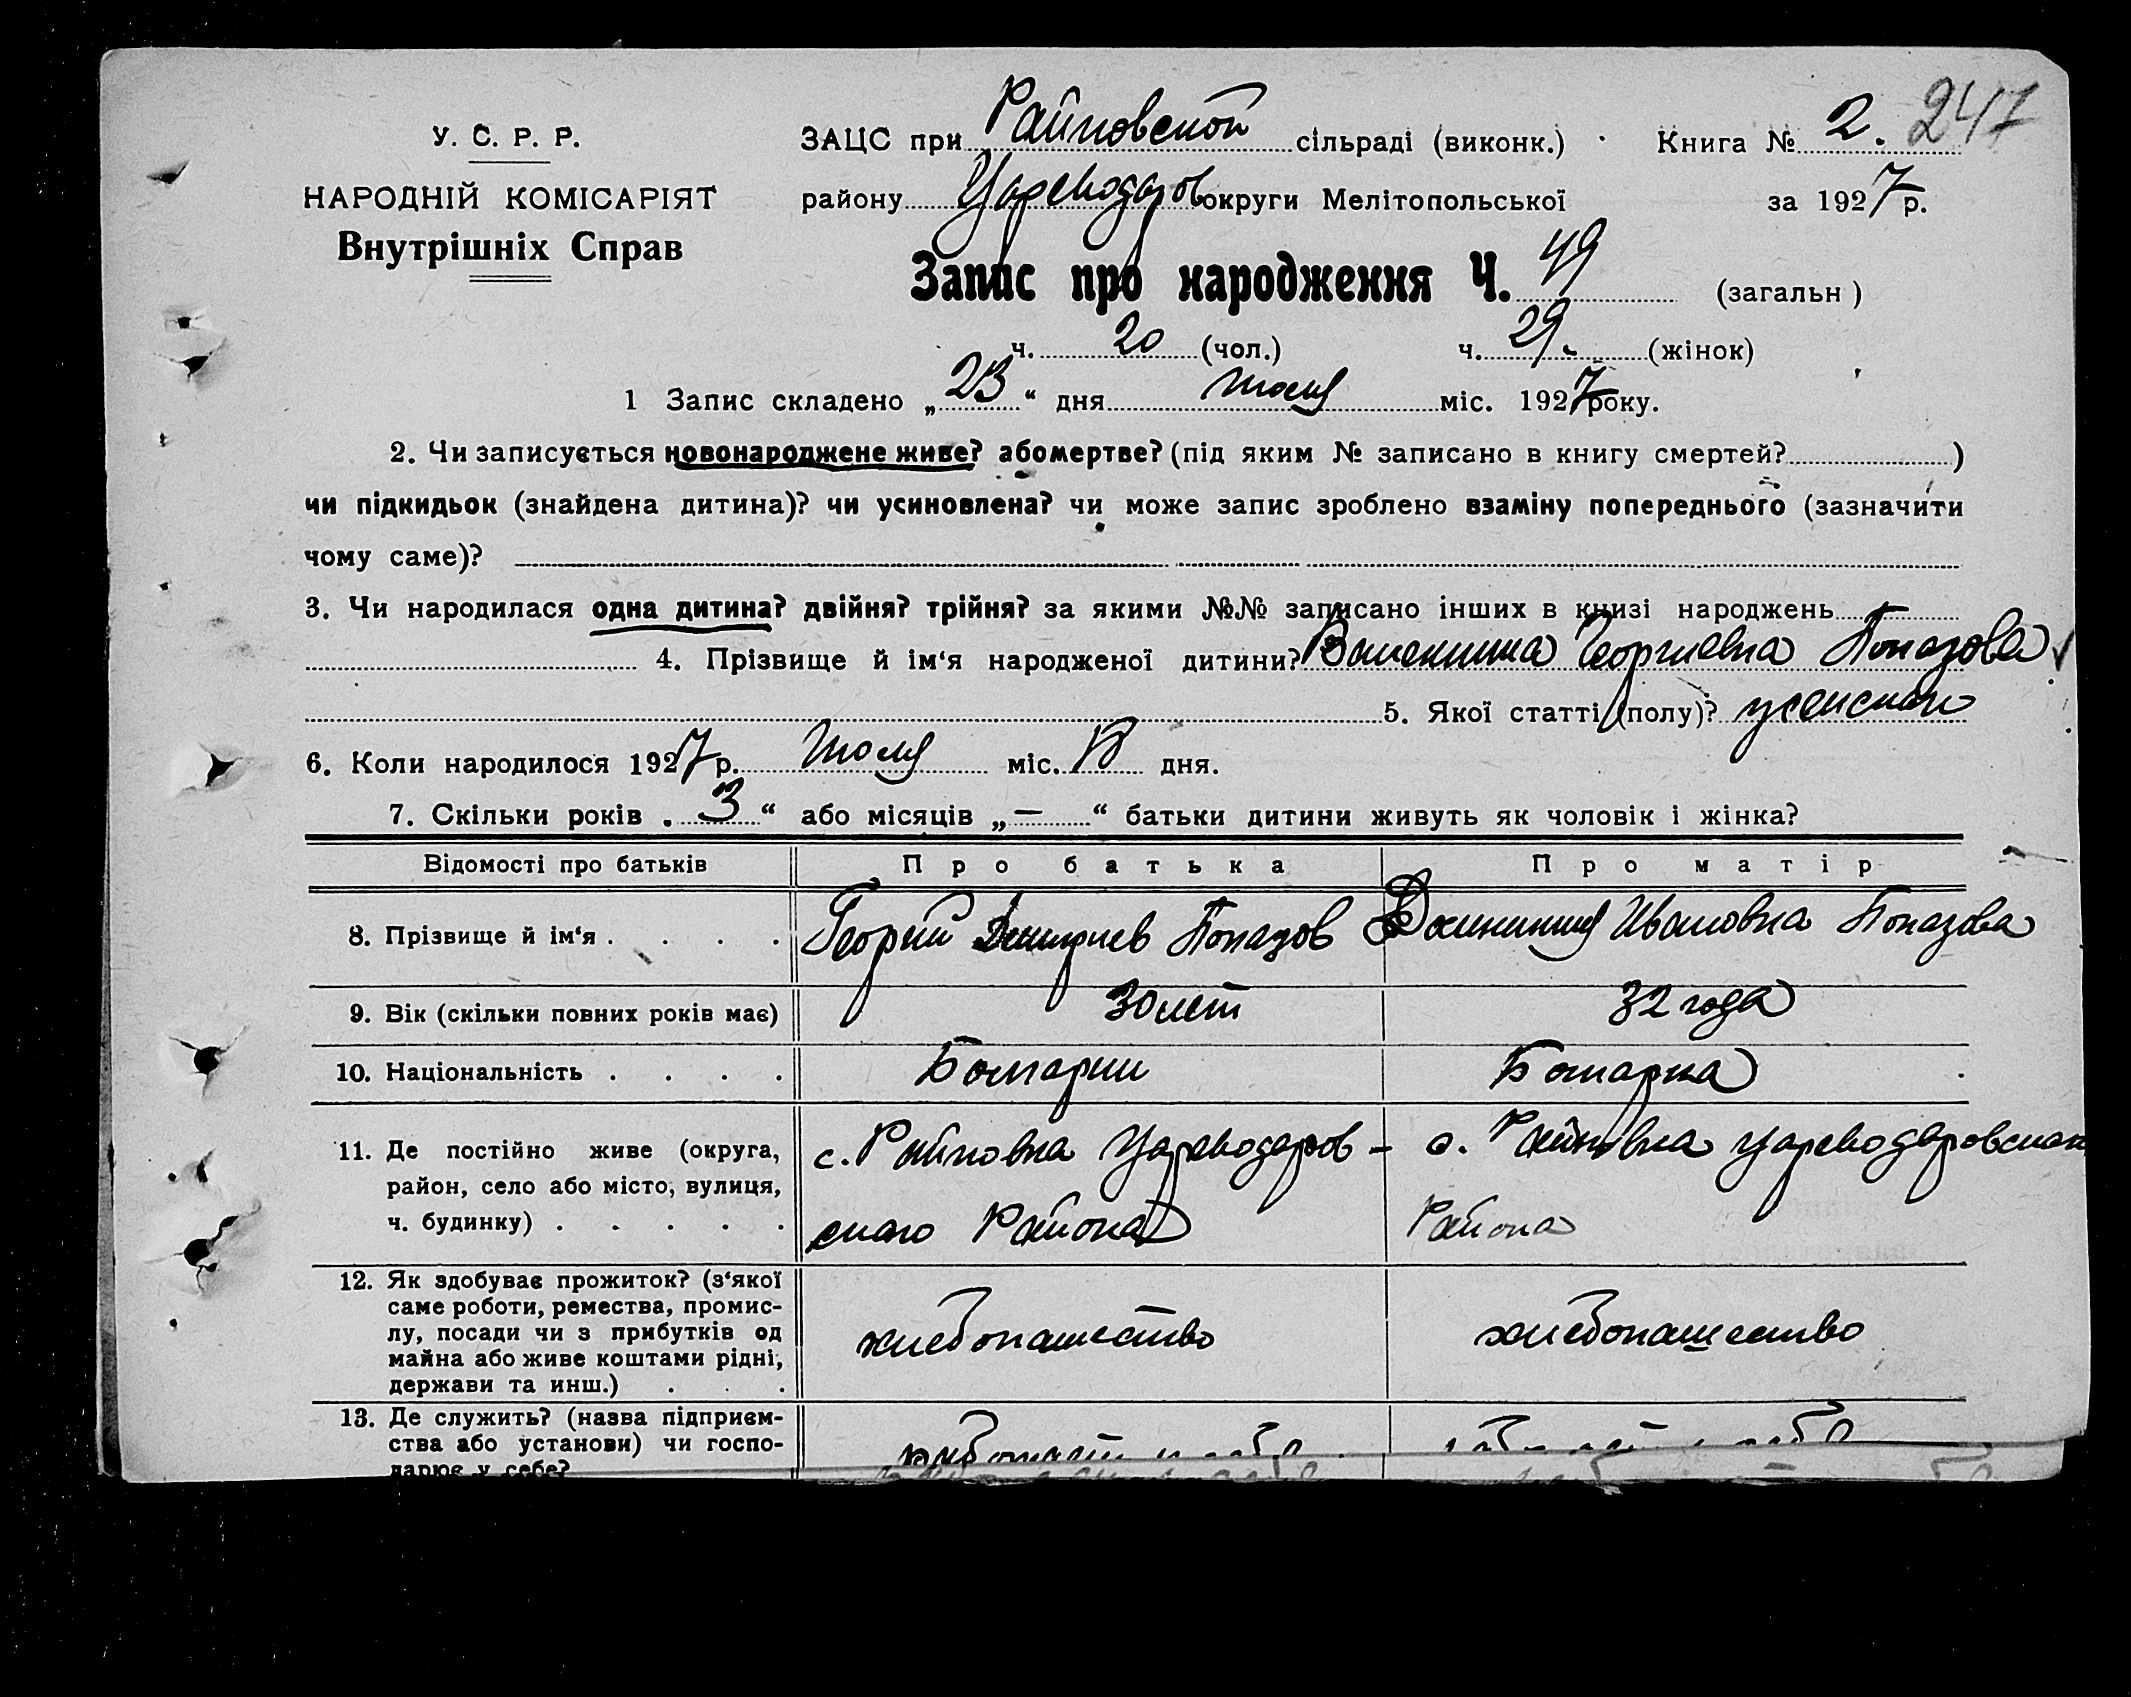 247
У. С. Р. Р.
НАРОДНІЙ КОМІСАРІЯТ
Внутрішніх Справ
ЗАЦС при Райновской сільраді (виконк.) Книга № 2.
району Цареводаров округи Мелітопольської за 1927 р.
Запис про народження Ч. 49 (загальн )
ч. 20 (чол.) ч. 29. (жінок)
1 Запис складено „23“ дня Июля міс. 1927 року.
2. Чи записується новонароджене живе? або мертве? (під яким № записано в книгу смертей? )
чи підкидьок (знайдена дитина)? чи усиновлена? чи може запис зроблено взаміну попереднього (зазначити
чому саме)?
3. Чи народилася одна дитина? двійня? трійня? за якими №№ записано інших в книзі народжень
4. Прізвище й ім‘я народженої дитини? Георгиевна Попазова
5. Якої статті (полу)? женскаго
6. Коли народилося 1927 р. Июля міс. дня.
7. Скільки років „3“ або місяців „—“ батьки дитини живуть як чоловік і жінка?
Відомості про батьків Про батька Про матір
8. Прізвище й ім‘я . . . . Георгий Дмитриев Попазов Ивановна Попазова
9. Вік (скільки повних років має) 30 лет 32 года
10. Національність . . . . Болгарин Болгарка
11. Де постійно живе (округа, район, село або місто, вулиця, ч. будинку) . . . . .
с. Райновка Цареводаров-
скаго Района
с. Райновка Цареводаровскаго
Района
12. Як здобуває прожиток? (з‘якої
саме роботи, ремества, промис-
лу, посади чи з прибутків од
майна або живе коштами рідні,
держави та инш.) . . .
хлебопашество хлебопашество
13. Де служить? (назва підприєм-
ства або установи) чи госпо-
дарює у себе?